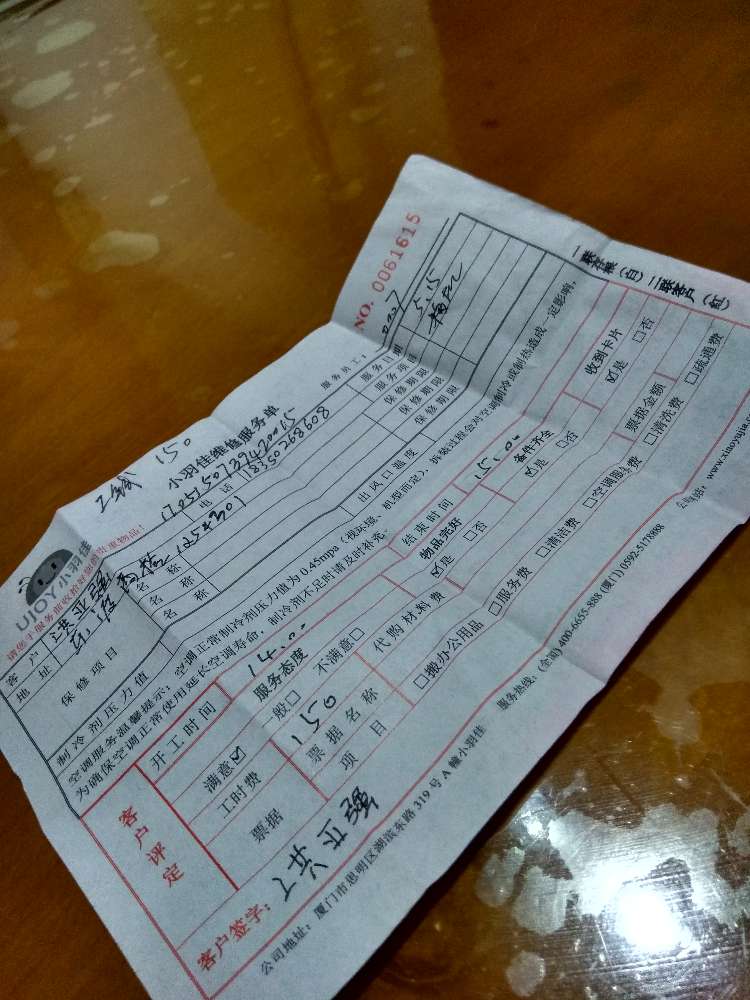 工钱 150
小羽佳维修服务单
NO. 0061615
UJOY小羽佳
请您于服务前收拾好您的贵重物品!
服务员工:
客户 洪亚强 电话 18350268608 服务日期 5.15
地址 服务项目
保修项目 名称 保修期限
名称 保修期限
名称 保修期限
制冷剂压力值 出风口温度
空调服务温馨提示:空调正常制冷剂压力值为0.45mpa(视环境、机型而定),
为确保空调正常使用延长空调寿命,制冷剂不足时请及时补充。
客户评定
开工时间 14:00 结束时间 15:00
服务态度 物品完好 备件齐全 收到卡片
满意☑ 一般□ 不满意□ ☑是 □否 ☑是 □否 ☑是 □否
工时费 150 代购材料费
票据 票据名称 票据金额
项目 □搬办公用品 □服务费 □清洁费 □空调服务费 □清洗费 □疏通费
客户签字: 洪亚强
公司地址:厦门市思明区湖滨东路319号A幢小羽佳 服务热线:(全国)400-6655-888 (厦门)0592-5178888 公司网址:www.xiaoyujia.com
一联存根(白) 二联客户(红)